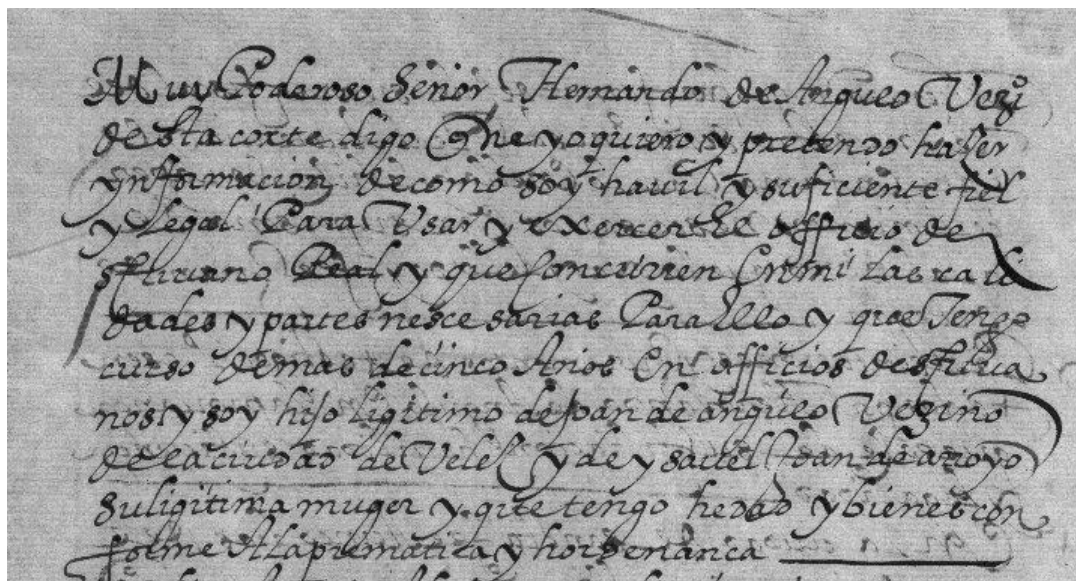 Muy Poderoso Señor Hernando de Angueo Vezi
desta corte digo Que yo quiero y pretendo hazer
ynformacion de como soy hauil y suficiente fiel
y Legal Para Usar y exercer el officio de
scriuano Real y que Concurren En mi las cali
dades y partes nescesarias Para Ello y que Tengo
curso de mas de cinco Años En officios de scriua
nos y soy hijo ligitimo de Joan de angueo Vezino
de la ciudad de Velez y de ysauel de arroyo
su ligitima muger y que tengo hedad y bienes con
forme A la prematica y hordenanca